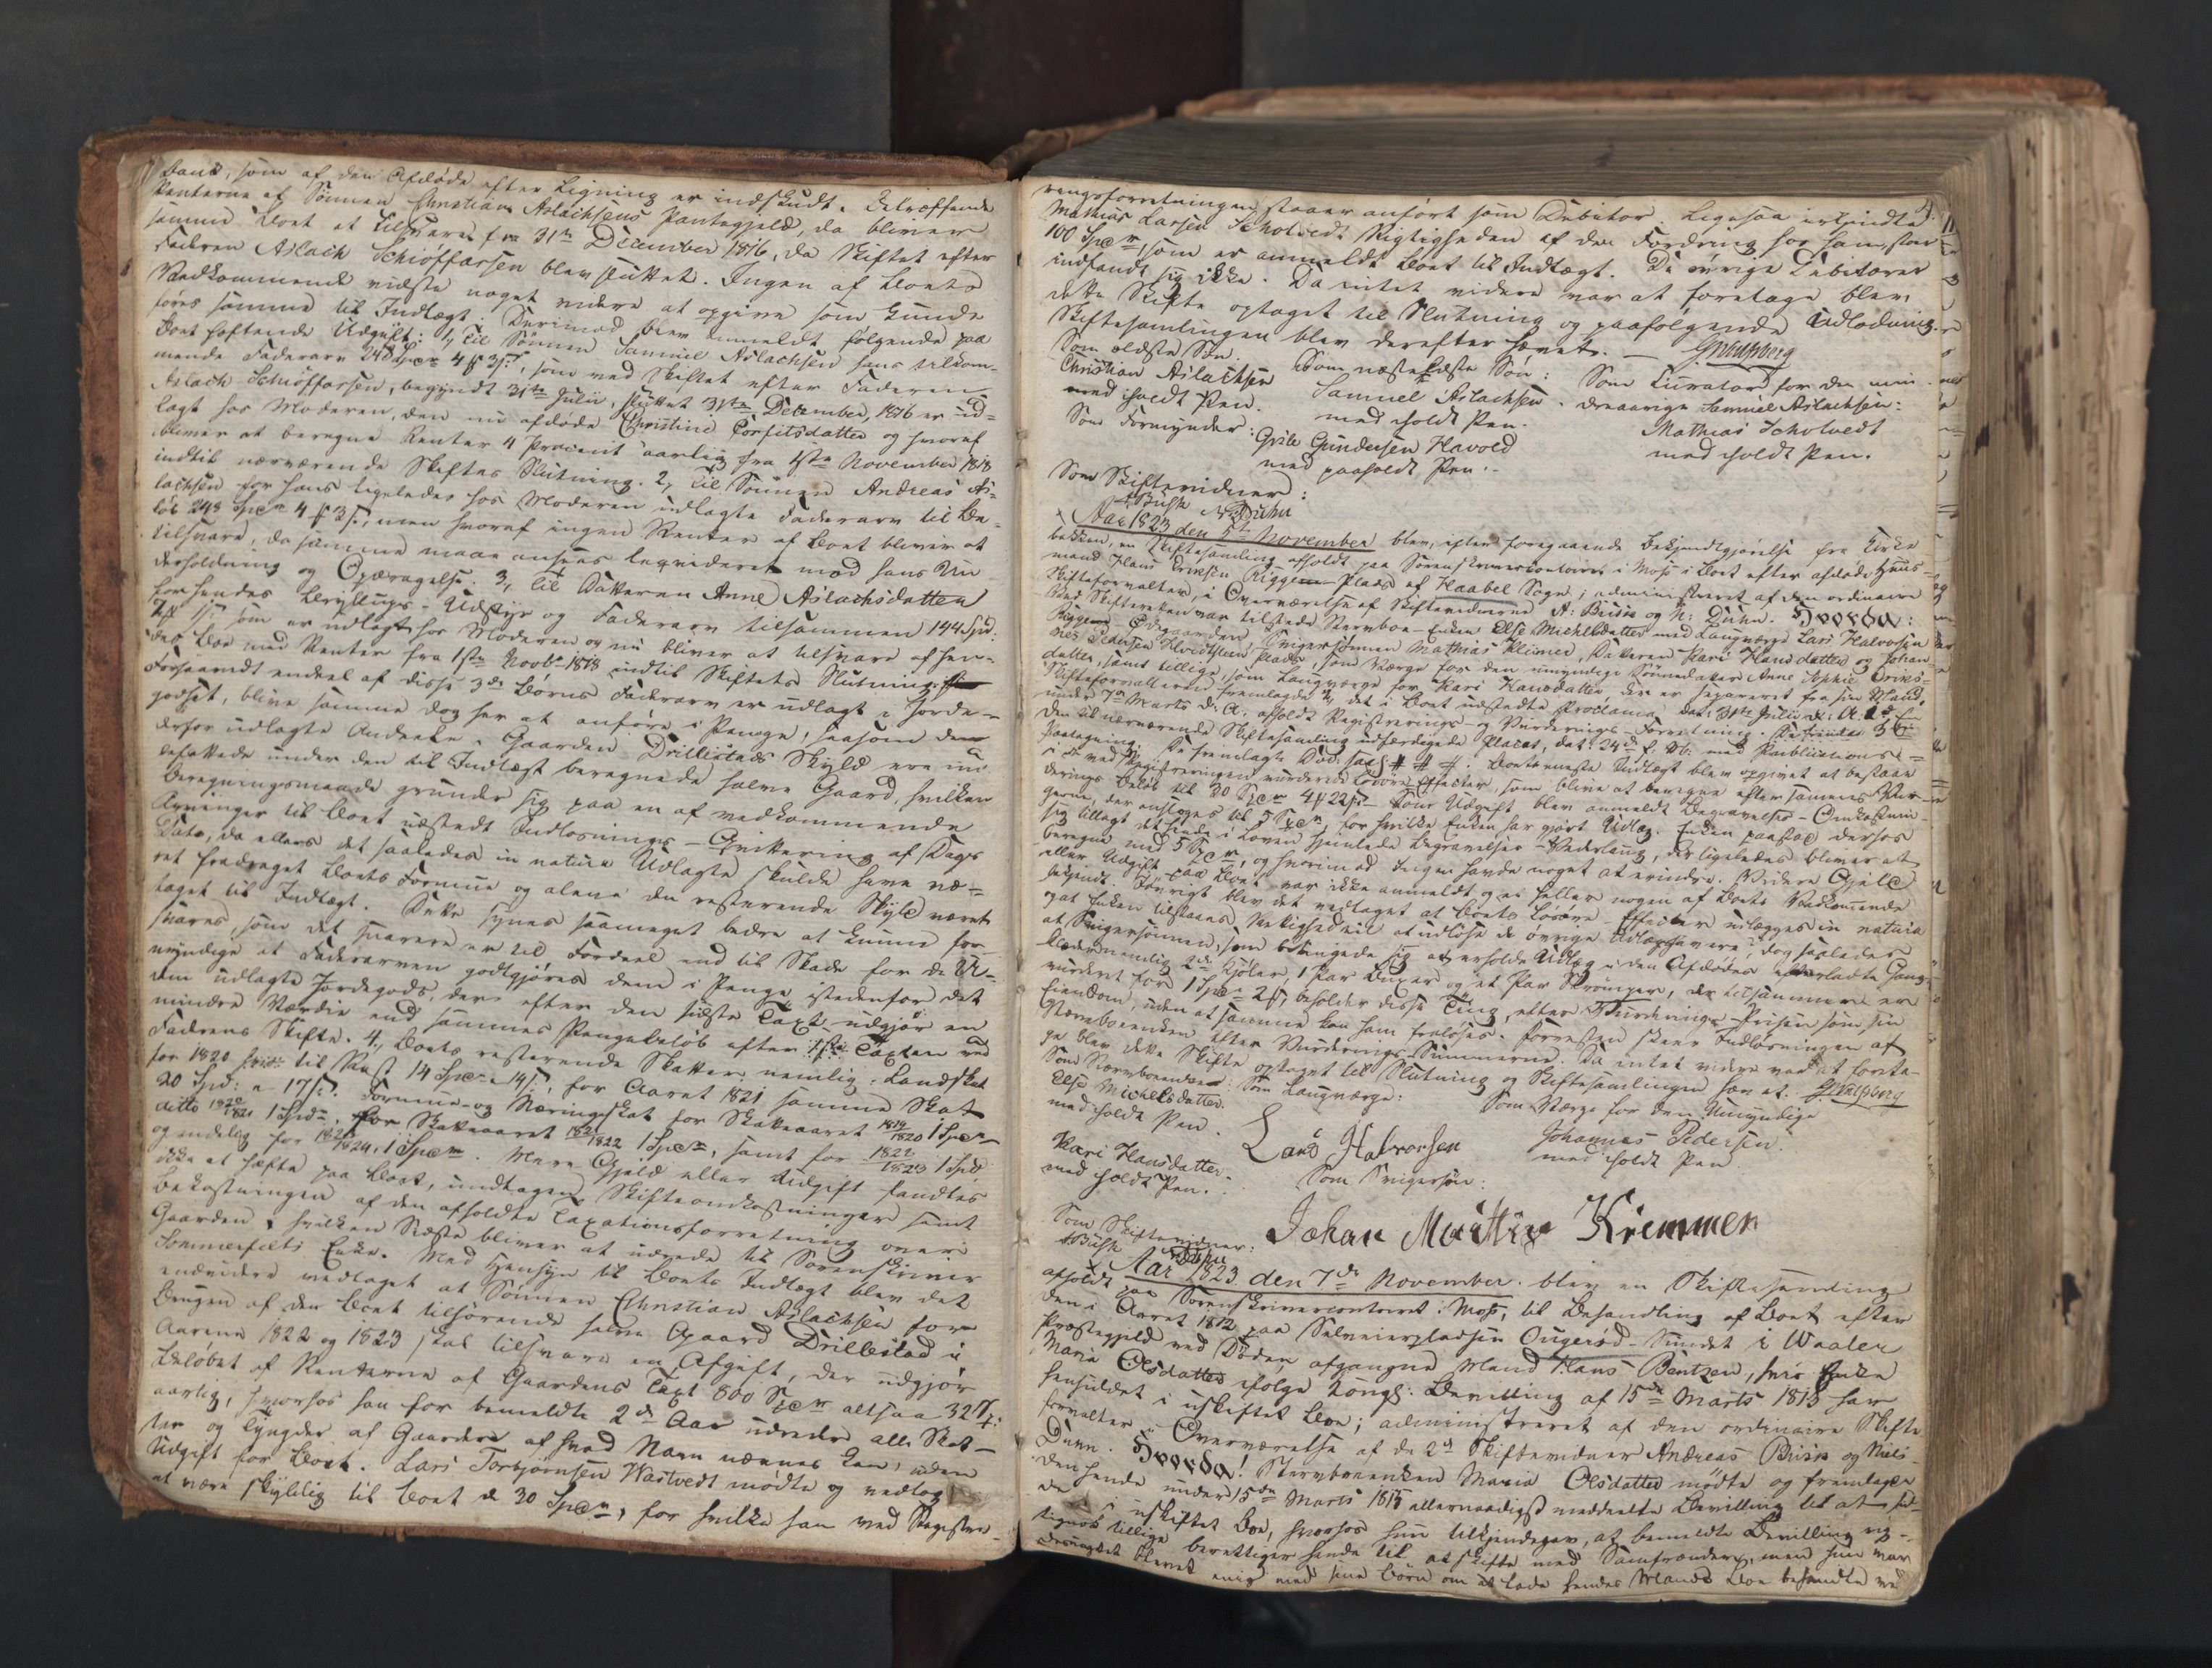 Bank, som af den Afdøde efter Ligning er indskudt. Betræffende
Renterne af Sønnen Christian Aslachsens Pantegjeld, da bliver
samme Boet at tilsvare fra 31te December 1816, da Skiftet efter
Faderen Aslach Schiøffarsen blev sluttet. Ingen af Boets
Vedkommende vidste noget videre at opgive som kunde
føres samme til Indtægt. Derimod blev anmeldt følgende paa
Boet heftende Udgift: 1, til Sønnen Samuel Aslachsen hans tilkom-
mende Faderarv 248 Spdr 4 # 3 s, som ved Skiftet efter Faderen
Aslach Schiøffarsen, begyndt 31te Julii, sluttet 31te December, 1816 er ud-
lagt hos Moderen, den nu afdøde Christine Torfitsdatter og hvoraf
bliver at beregne Renter 4 Procent aarlig fra 1ste November 1818
indtil nærværende Skiftes Slutning. 2, til Sønnen Andreas As-
lachsen for hans ligeledes hos Moderen udlagte Faderarv til Be-
løb 248 Spdr 4 # 3 s, men hvoraf ingen Renter af Boet bliver at
tilsvare, da samme maae ansees liqvideret mod hans Un-
derholdning og Opdragelse. 3, til Datteren Anne Aslachsdatter
for hendes Bryllups-Udstyr og Faderarv tilsammen 144 Spd:
som er udlagt hos Moderen og nu bliver at tilsvare af hen-
des Boe med Renter fra 1ste Novbr 1818 indtil Skiftets Slutning.
Forsaavidt endeel af disse 3de Børns Faderarv er udlagt i Jorde-
godset, blive samme dog her at anføre i Penge, saasom den
derfor udlagte Andeele i Gaarden Drillestads Skyld ere nu
befattede under den til Indtægt beregnede halve Gaard, hvilken
Beregningsmaade grunder sig paa en af vedkommende
Arvinger til Boet udstædt Indløsnings-Qvittering af Dags
Dato, da ellers det saaledes in natura Udlagte skulde have væ-
ret fradraget Boets Formue og alene den resterende Skyld været
taget til Indtægt. Dette synes saameget bedre at kunne for-
svares, som det snarere er til Fordeel end til Skade for de U-
myndige at Faderarven godtgjøres dem i Penge istedenfor det
dem udlagte Jordegods, der efter den sidste Taxt udgjør en
mindre Værdie end sammes Pengebeløb efter Taxten ved
Faderens Skifte. 4, Boets resterende Skatter nemlig: Landskat
for 1820 til Rest 14 Spdr 14 s, for Aaret 1821 samme Skat
20 Spd: 17 s. Formue- og Næringsskat for Skatteaaret 1819/1820 1 Spdr
ditto 1820/1821 1 Spdr, for Skatteaaret 1821/1822 1 Spdr, samt for 1822/1823 1 Spd:
og endelig for 1823/1824, 1 Spdr. Mere Gjeld eller Udgift fandtes
ikke at hæfte paa Boet, undtagen Skifteomkostninger samt
Bekostningen af den afholdte Taxationsforretning over
Gaarden, hvilken Sidste bliver at udrede til Sorenskriver
Sommerfelts Enke. Med Hensyn til Boets Indtægt blev det
endvidere vedtaget at Sønnen Christian Aslachsen for
Brugen af den Boet tilhørende halve Gaard Drillestad i
Aarene 1822 og 1823 skal tilsvare en Afgift, der udgjør
Beløbet af Renterne af Gaardens Taxt 800 Spdr altsaa 32
aarlig, hvorhos han for bemeldte 2de Aar udreder alle Skat-
ter og Tyngder af Gaarden af hvad Navn nævnes kan, uden
Udgift for Boet. Lars Torbjørnsen Wartvedt mødte og vedtog
at være skyldig til Boet de 30 Spdr, for hvilke han ved Registre-
ringsforretningen staaer anført som Debitor. Ligesaa erkjendte
Mathias Larsen Scholvedt Rigtigheden af den Fordring hos ham, stor
100 Spdr, som er anmeldt Boet til Indtægt. De øvrige Debitorer
indfandt sig ikke. Da intet videre var at foretage blev
dette Skifte optaget til Slutning og paafølgende Udlodning.
Skiftesamlingen blev derefter hævet. —
Som ældste Søn. Som næstældste Søn: Som Curator for den min-
Christian Aslachsen Samuel Aslachsen. dreaarige Samuel Aslachsen:
med holdt Pen. med holdt Pen. Mathias Scholvedt
Som Formynder: Gulle Gundersen Havold med holdt Pen.
med paaholdt Pen.
Som Skiftevidner:
ABüsk NDuhn
Aar 1823 den 5te November blev, efter foregaaende Bekjendtgjørelse fra Kirke
bakken, en Skiftesamling afholdt paa Sorenskrivercontoiret i Moss i Boet efter afdøde Huus-
mand Hans Eriksen Riggeplads af Haabel Sogn; administreret af den ordinaire
Skifteforvalter, i Overværelse af Skiftevidnerne A: Büsk og N: Duhn. Hvorda:
Ved Skifteretten var tilstede Stervboe-Enken Else Michelsdatter med Laugværge Lars Halvorsen
Svigersønnen Mathias Klemmer, Datteren Kari Hansdatter og Johan-
nes Pedersen plads, som Værge for den umyndige Sønnedatter Anne Sophie Eriks-
datter, samt tillige, som Laugværge for Kari Hansdatter, der er separeret fra sin Mand.
Skifteforvalteren fremlagde det i Boet udstædte Proclama, dat: 31te Julii d: A.
under 7de Marts d: A. afholdt Registrerings- og Vurderings-Forretning.
den til nærværende Skiftesamling udfærdigede Placat, dat: 24de f. M: med Publications-
Paategning. De fremlagte Documenter. Boets meste Indtægt blev opgivet at bestaae
i de ved Registreringen vurderede Løsøre Effecter, som blive at beregne efter sammes Vur-
derings Beløb til 30 Spdr 4 # 22 s. Som Udgift blev anmeldt Begravelses-Omkostnin-
gerne, der ansloges til 5 Spdr, for hvilke Enken har gjort Udlæg. Enken paastod derhos
sig tillagt det hende i Loven hjemlede Begravelses-Vederlaug, der ligeledes bliver at
beregne med 5 Spdr, og hvorimod Ingen havde noget at erindre. Videre Gjeld
eller Udgift paa Boet var ikke anmeldt og ei heller nogen af Boets Vedkommende
bekjendt. Iøvrigt blev det vedtaget at Boets Løsøre-Effecter udlægges in natura
og at Enken tilstaaes Rettighed til at udløse de øvrige Udlægshavere, dog saaledes
at Svigersønnen, som betingede sig at erholde Udlæg i den Afdødes efterladte Gang-
klæder nemlig 2de Kjoler, 1 Par Buxer og et Par Strømper, der tilsammen er
vurderet for 1 Spdr 2 #, beholder disse Ting, efter Vurderings-Prisen som sin
Eiendom, uden at samme kan ham fraløses. Forresten skeer Indløsningen af
Stervboenken efter Vurderings-Summerne. Da intet videre var at foreta-
ge blev dette Skifte optaget til Slutning og Skiftesamlingen hævet.
Som Stervboenke: Som Laugværge: Som Værge for den Umyndige
Else Michelsdatter. Lars Halvorsen Johannes Pedersen.
med holdt Pen. med holdt Pen.
Kari Hansdatter. Som Svigersøn:
med holdt Pen.
Johan Mathis Klemmer
Som Skiftevidner:
ABüsk NDuhn
Aar 1823 den 7de November blev en Skiftesamling
afholdt paa Sorenskrivercontoiret i Moss, til Behandling af Boet efter
den i Aaret 1812 paa Selveierpladsen Ougerød-Sundet i Waaler
Præstegjeld ved Døden afgangne Mand Hans Bentzen, hvis Enke
Maria Olsdatter ifølge Kongl: Bevilling af 15de Marts 1813 har
hensiddet i uskiftet Boe; administreret af den ordinaire Skifte
forvalter i Overværelse af de 2de Skiftevidner Andreas Büsk og Niels
Duhn. Hvorda! Stervboenken Maria Olsdatter mødte og fremlagde
den hende under 15de Marts 1813 allernaadigst meddeelte Bevilling til at sid-
de i uskiftet Boe, hvorhos hun tilkjendegav, at bemeldte Bevilling vig-
tignok tillige berettiger hende til at skifte med Samfrænder, men hun var
desuagtet blevet enig med sine Børn om at lade hendes Mands Boe behandle ved